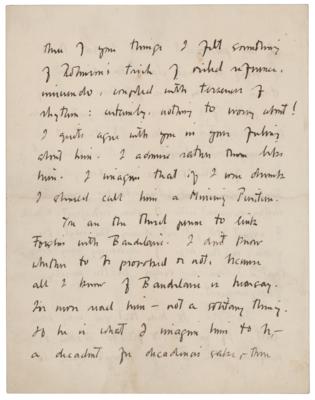 three of your things I felt something
of Robinson's trick of veiled reference,
innuendo, coupled with terseness of
rhythm: certainly, nothing to worry about!
I quite agree with you in your feeling
about him. I admire rather than like
him. I imagine that if I were drunk
I should call him a Puritan.
You are the third person to link
with Baudelaire. I don't know
whether to be provoked or not, because
all I know of Baudelaire is hearsay.
I've never read him — not a solitary thing.
If he is what I imagine him to be —
a decadent for decadence's sake, then